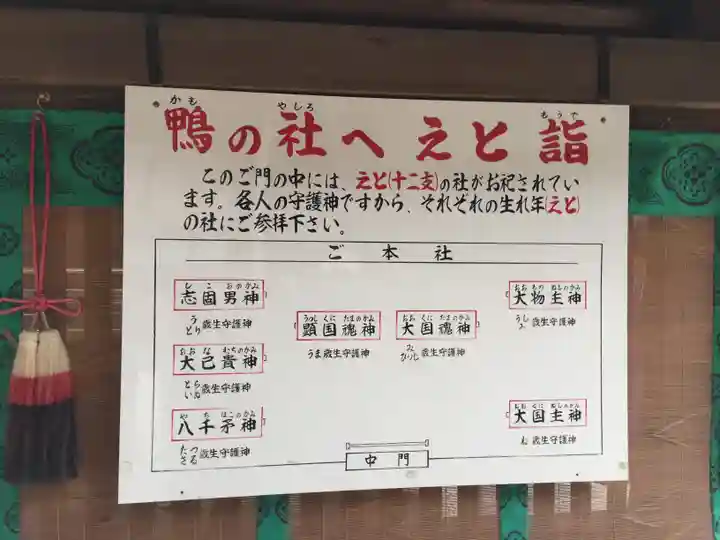 鴨の社へえと詣
かも やしろ もうで
このご門の中には、えと(十二支)の社がお祀されてい
ます。各人の守護神ですから、それぞれの生れ年(えと)
の社にご参拝下さい。
ご本社
しこおのかみ
志固男神
う とり 歳生守護神
おおなむちのかみ
大己貴神
とら いぬ 歳生守護神
やちほこのかみ
八千矛神
たつ さる 歳生守護神
うつしくにたまのかみ
顕国魂神
うま歳生守護神
おおくにたまのかみ
大国魂神
み ひつじ 歳生守護神
おおものぬしのかみ
大物主神
うし 歳生守護神
おおくにぬしのかみ
大国主神
ね 歳生守護神
中門